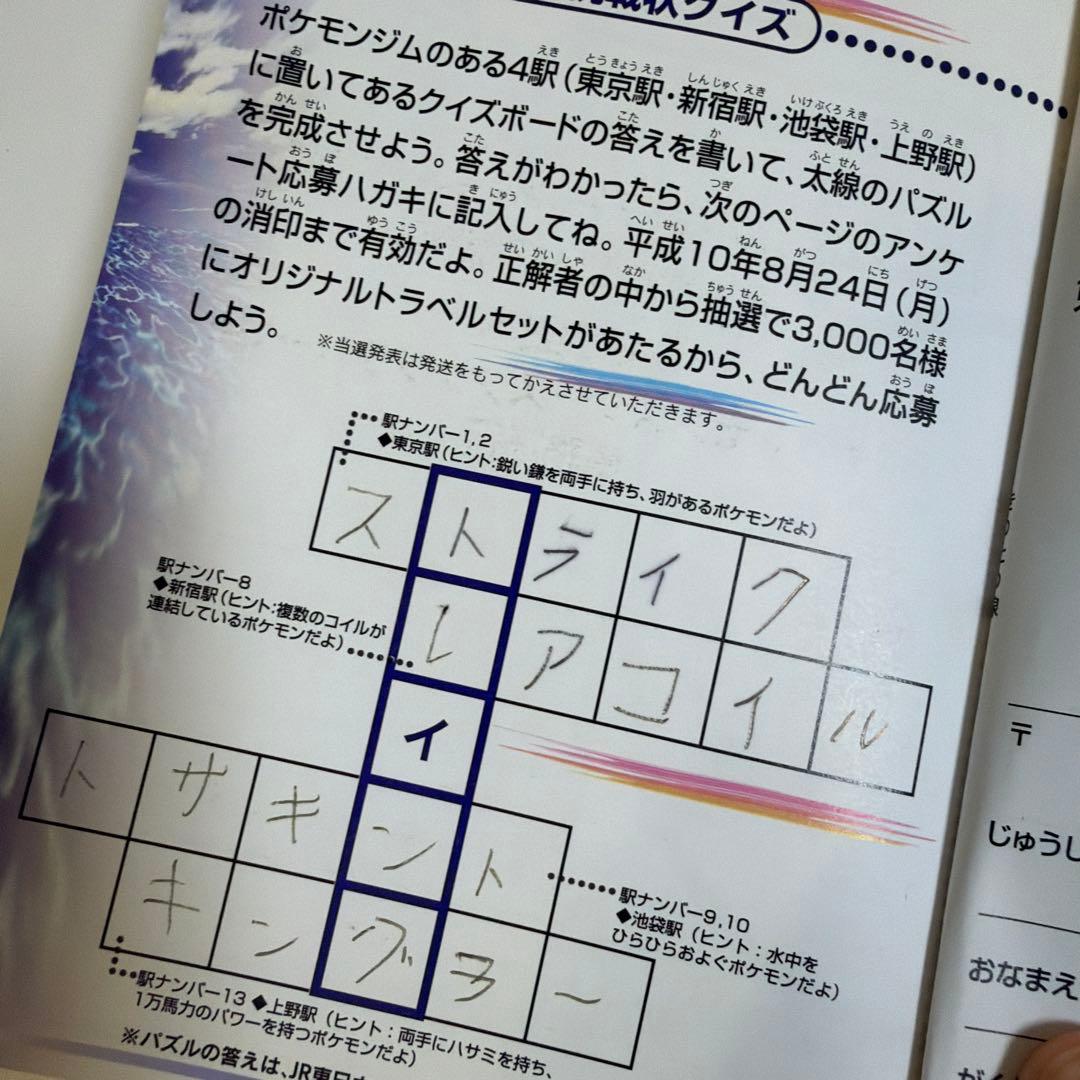 戦状クイズ
ポケモンジムのある4駅(東京駅・新宿駅・池袋駅・上野駅)
に置いてあるクイズボードの答えを書いて、太線のパズル
を完成させよう。答えがわかったら、次のページのアンケ
ート応募ハガキに記入してね。平成10年8月24日(月)
の消印まで有効だよ。正解者の中から抽選で3,000名様
にオリジナルトラベルセットがあたるから、どんどん応募
しよう。
※当選発表は発送をもってかえさせていただきます。
駅ナンバー1,2
◆東京駅(ヒント:鋭い鎌を両手に持ち、羽があるポケモンだよ)
ストライク
駅ナンバー8
◆新宿駅(ヒント:複数のコイルが
連結しているポケモンだよ)
レアコイル
イ
トサキント
駅ナンバー9,10
◆池袋駅(ヒント:水中を
ひらひらおよぐポケモンだよ)
キングラー
駅ナンバー13◆上野駅(ヒント:両手にハサミを持ち、
1万馬力のパワーを持つポケモンだよ)
※パズルの答えは、JR東日本
〒
じゅうし
おなまえ